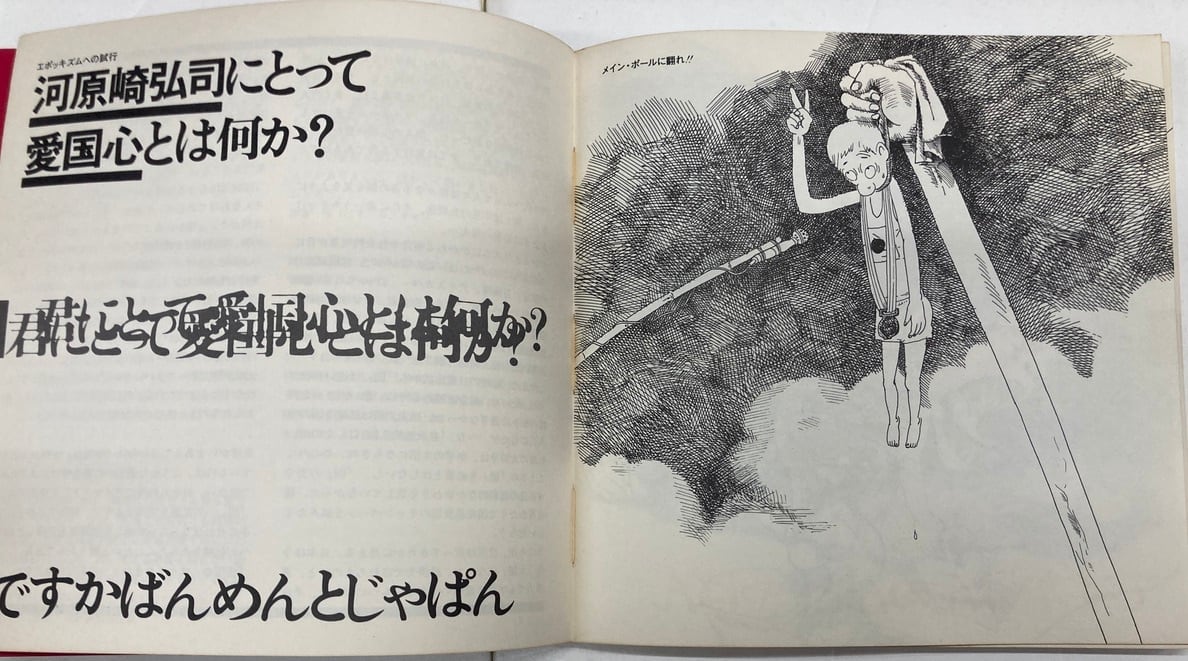 エポッキズムへの試行
河原崎弘司にとって
愛国心とは何か?
君にとって愛国心とは何か?
ですかばんめんとじゃぱん
メイン・ポールに翻れ!!